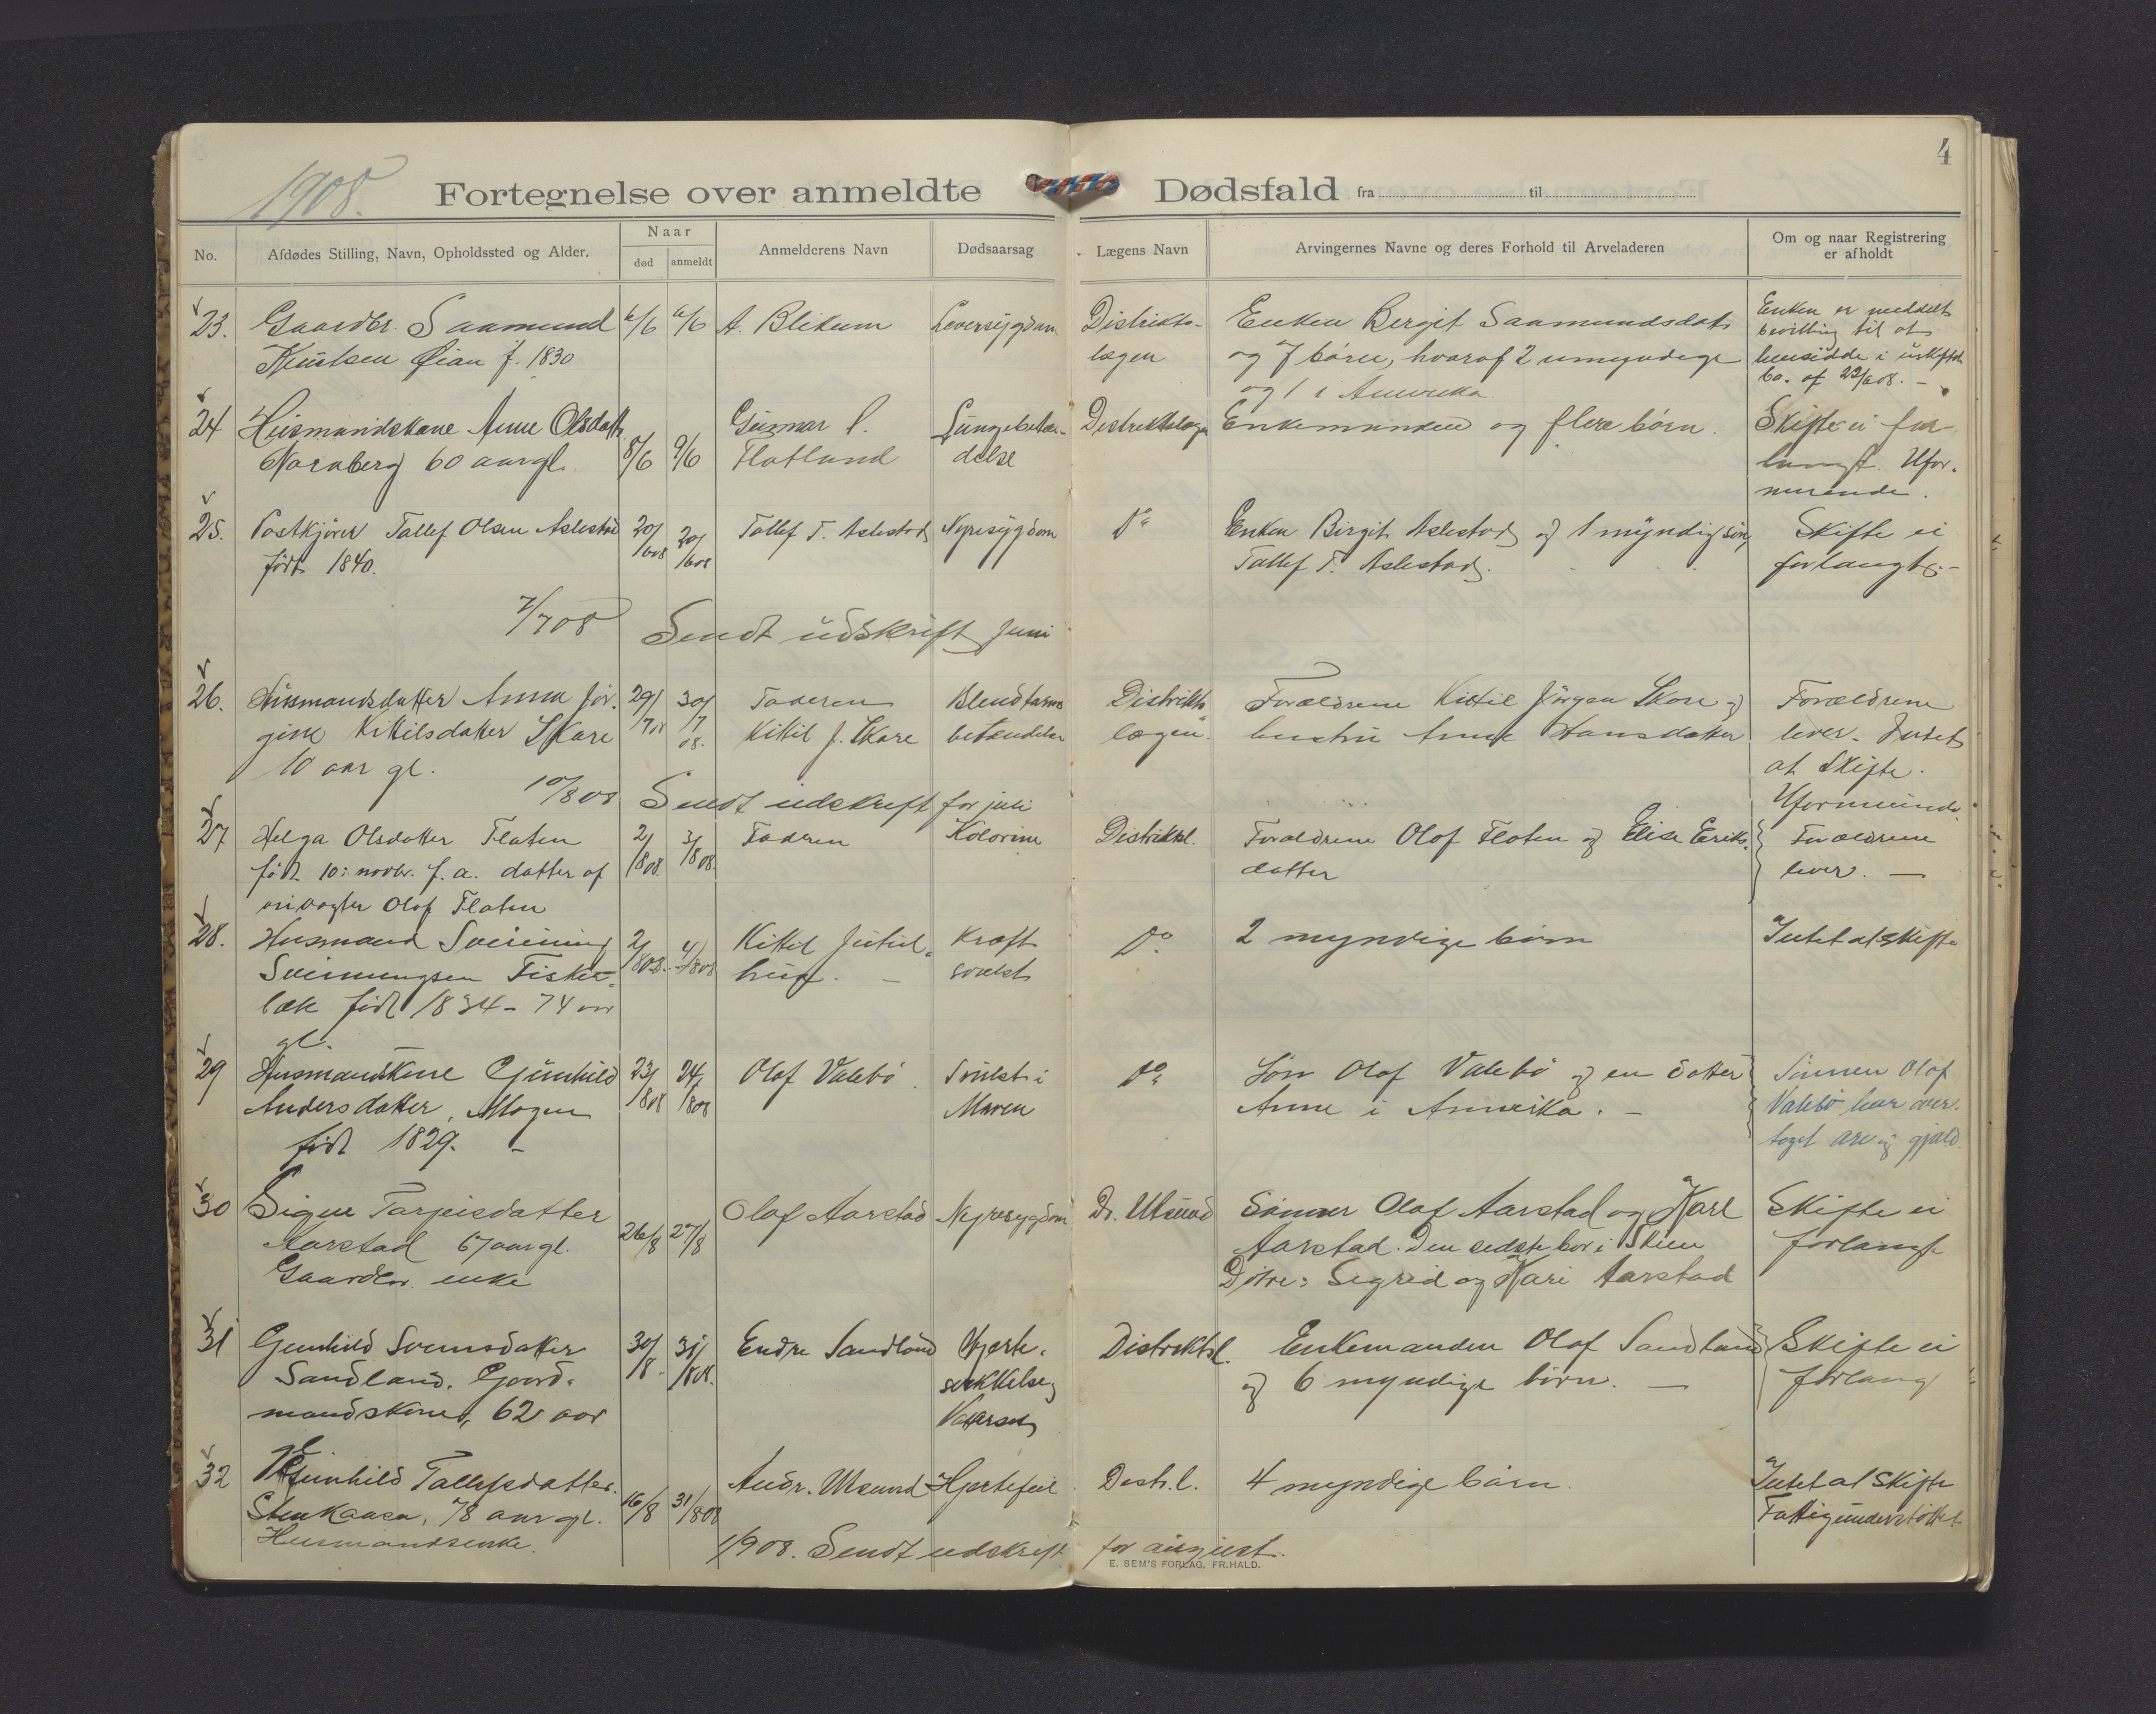 4
1908.
Fortegnelse over anmeldte Dødsfald fra til
No.
Afdødes Stilling, Navn, Opholdssted og Alder.
Naar
død
anmeldt
Anmelderens Navn
Dødsaarsag
Lægens Navn
Arvingernes Navne og deres Forhold til Arveladeren
Om og naar Registrering
er afholdt
23. Gaardbr. Saamund
Knutsen Øian f. 1830
6/6 6/6
A. Blikum
Leversygdom
Distrikts-
lægen
Enken Bergit Saamundsdat
og 7 børn, hvoraf 2 umyndige
og 1 i Amerika
Enken er meddelt
bevilling til at
hensidde i uskiftet
bo. af 22/6 08. -
24 Husmandskone Anne Olsdatt
Nornberg 60 aar gl.
8/6 9/6
Gunnar
Flatland
Lungebetæn-
delse
Distriktslægen
Enkemanden og flere børn.
Skifte ei for-
langt. Ufor-
muende.
25. Postkjører Tallef Olsen Aslestad
født 1840.
20/6 08 20/6 08
Tallef T. Aslestad
Nyresygdom
Do
Enken Birgit Aslestad og 1 myndig søn,
Tallef T. Aslestad.
Skifte ei
forlangt. -
7/7 08 Sendt udskrift juni
26. Husmandsdatter Anna Jør-
gine Kittilsdatter Skare
10 aar gl.
29/7 08 30/7 08.
Faderen
Kittil J. Skare
Blindtarms
betændelse
Distrikts
lægen.
Forældrene Kittil Jørgen Skare og
hustru Anne Hansdatter
Forældrene
lever. Intet
at Skifte.
Uformuende.
10/8 08 Sendt udskrift for juli
27 Helga Olsdatter Flaten
født 10: novbr. f. a. datter af
Olaf Flaten
2/8 08. 3/8 08.
Fadren
Kolorine
Distriktsl.
Forældrene Olaf Flaten og Elise Eriks-
datter
Forældrene
lever. -
28. Husmand Sveinung
Sveinungsen Fiske-
bæk født 1834 - 74 aar
gl.
2/8 08. 4/8 08
Kittil
Kræft
svulst
Do.
2 myndige børn
Intet at skifte
29 Husmandskone Gunhild
Andersdatter, Mogen
født 1829. -
23/8 08 24/8 08
Olaf Valebø.
Svulst i
Maven
Do
Søn Olaf Valebø og en datter
Anne i Amerika. -
Sønnen Olaf
Valebø har over-
taget arv og gjæld.
30 Signe Tarjeisdatter
Aarstad 67 aar gl.
Gaardbr. enke
26/8 27/8
Olaf Aarstad
Nyresygdom
Dr. Utsund
Sønner Olaf Aarstad og Karl
Aarstad. Den sidste bor i Skien
Døtre: Sigrid og Kari Aarstad
Skifte ei
forlangt
31 Gunhild Sveinsdatter
Sandland. Gaard-
mandskone, 62 aar
30/8. 31/8 08.
Endre Sandland
Hjerte-
Vattersot
Distriktsl.
Enkemanden Olaf Sandland
og 6 myndige børn. -
Skifte ei
forlangt
32 Gunhild Tallefsdatter
Stenkaasa, 78 aar gl.
Husmandsenke.
16/8 31/8 08
Andr. Utsund
Hjertefeil
Distr. l.
4 myndige børn.
Intet at skifte
Fattigunderstøttet
1/9 08. Sendt udskrift for august.
E. SEM'S FORLAG, FR.HALD.